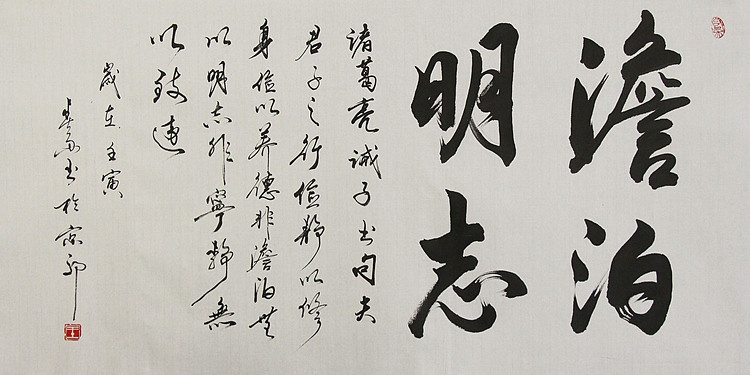 澹泊
明志
诸葛亮诫子书句夫
君子之行俭静以修
身俭以养德非澹泊無
以明志非寧静無
以致遠
歲在壬寅
书於京郊